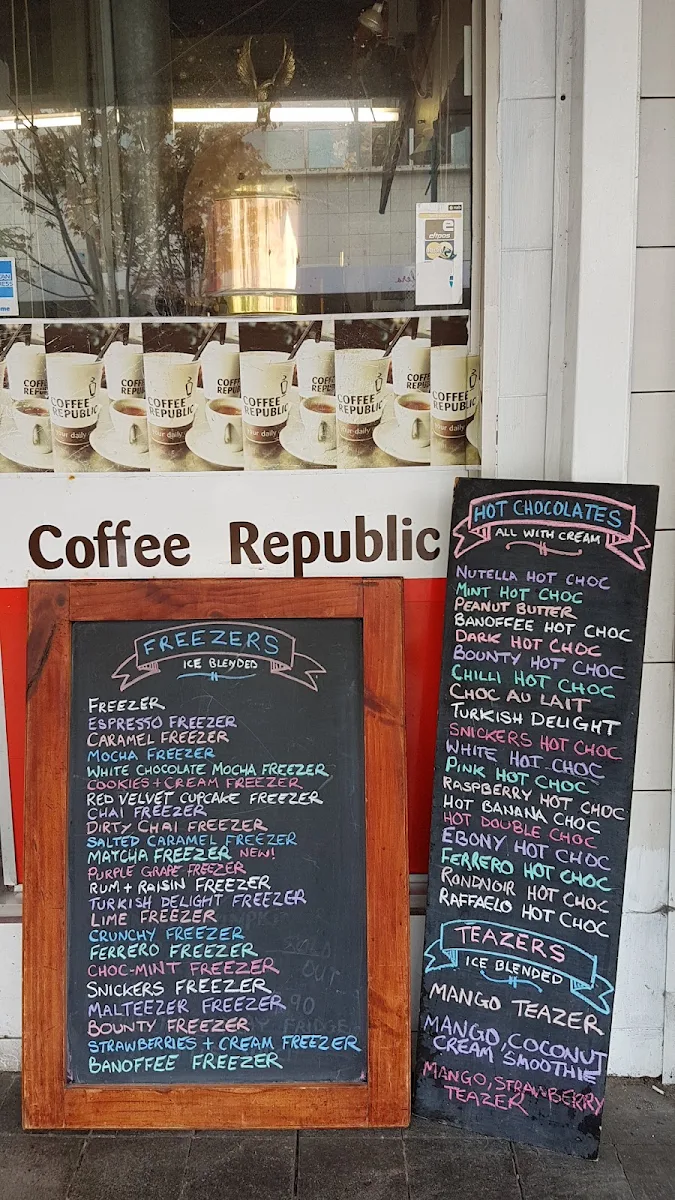 eftpos
COFFEE REPUBLIC
your daily
COFFEE REPUBLIC
your daily
COFFEE REPUBLIC
your daily
COFFEE REPUBLIC
your daily
COFFEE REPUBLIC
your daily
Coffee Republic
FREEZERS
ICE BLENDED
FREEZER
ESPRESSO FREEZER
CARAMEL FREEZER
MOCHA FREEZER
WHITE CHOCOLATE MOCHA FREEZER
COOKIES + CREAM FREEZER
RED VELVET CUPCAKE FREEZER
CHAI FREEZER
DIRTY CHAI FREEZER
SALTED CARAMEL FREEZER
MATCHA FREEZER NEW!
PURPLE GRAPE FREEZER
RUM + RAISIN FREEZER
TURKISH DELIGHT FREEZER
LIME FREEZER
CRUNCHY FREEZER
FERRERO FREEZER
CHOC-MINT FREEZER
SNICKERS FREEZER
MALTEEZER FREEZER
BOUNTY FREEZER
STRAWBERRIES + CREAM FREEZER
BANOFFEE FREEZER
HOT CHOCOLATES
ALL WITH CREAM
NUTELLA HOT CHOC
MINT HOT CHOC
PEANUT BUTTER
BANOFFEE HOT CHOC
DARK HOT CHOC
BOUNTY HOT CHOC
CHILLI HOT CHOC
CHOC AU LAIT
TURKISH DELIGHT
SNICKERS HOT CHOC
WHITE HOT CHOC
PINK HOT CHOC
RASPBERRY HOT CHOC
HOT BANANA CHOC
HOT DOUBLE CHOC
EBONY HOT CHOC
FERRERO HOT CHOC
RONDNOIR HOT CHOC
RAFFAELO HOT CHOC
TEAZERS
ICE BLENDED
MANGO TEAZER
MANGO, COCONUT
CREAM SMOOTHIE
MANGO, STRAWBERRY
TEAZER